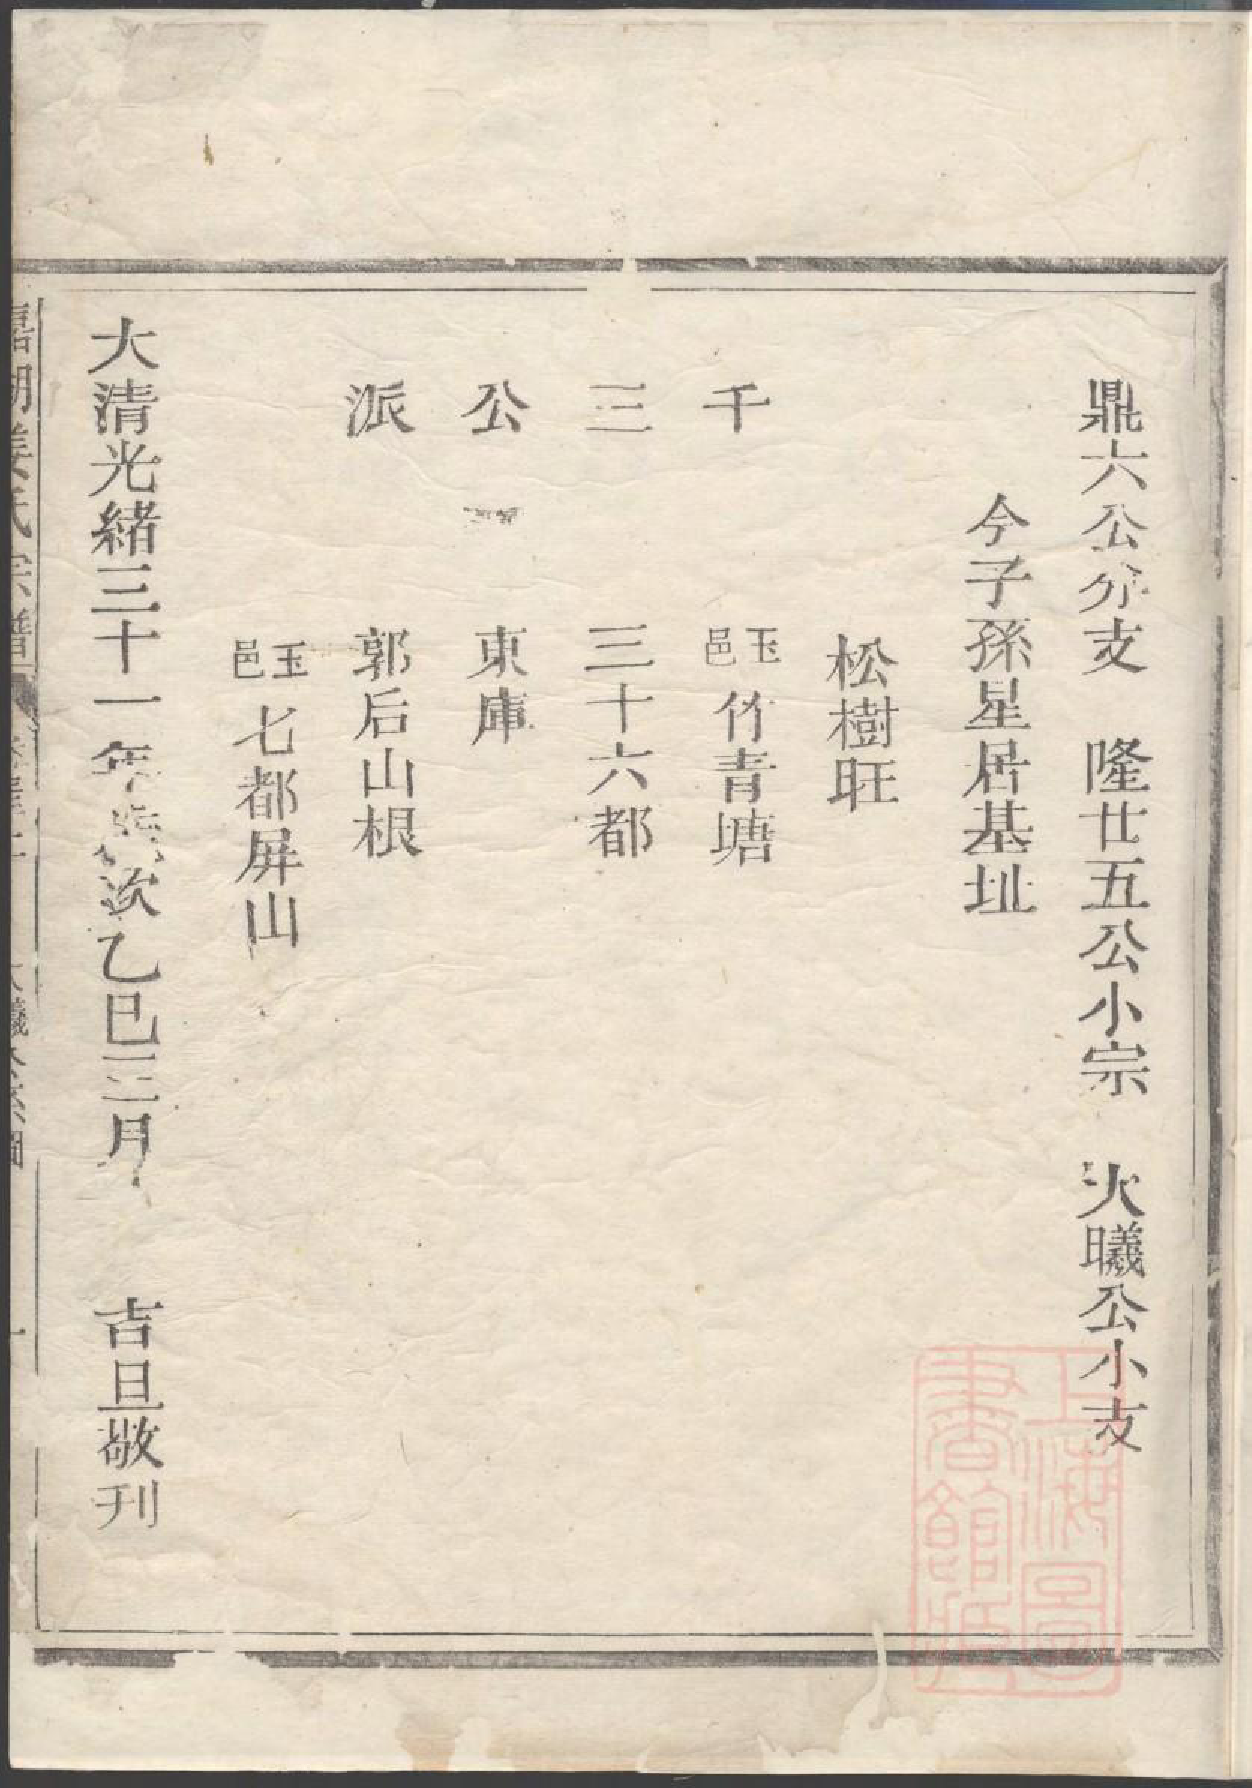 鼎六公分支　隆廿五公小宗　火曦公小支
今子孫星居基址
松樹旺
千　玉邑竹青塘
三　三十六都
公　東庫
派　郭后山根
玉邑七都屏山
大清光緒三十一年歲次乙巳三月　吉旦敬刊
姜氏宗譜
上海圖書館藏